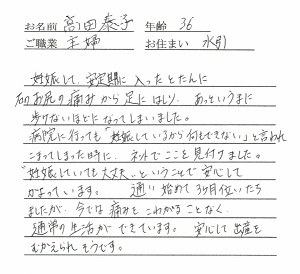 お名前 高田泰子 年齢 36
ご職業 主婦 お住まい 水引
妊娠して、安定期に入ったとたんに
右のお尻の痛みから足にはしり、あっというまに
歩けないほどになってしまいました。
病院に行っても「妊娠しているから何もできない」と言われ
こまってしまった時に、ネットでここを見付けました。
"妊娠していても大丈夫"ということで安心して
かよっています。 通い始めて3ヶ月位いたち
ましたが、今では痛みをこわがることなく、
通常の生活ができています。 安心して出産を
むかえられそうです。